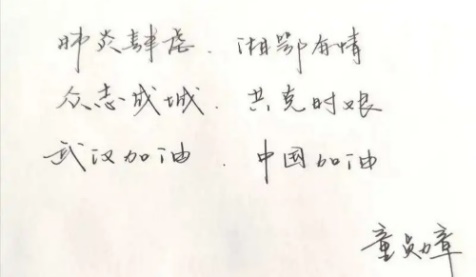 肺炎肆虐．湘鄂有情
众志成城．共克时艰
武汉加油．中国加油
童贞璋